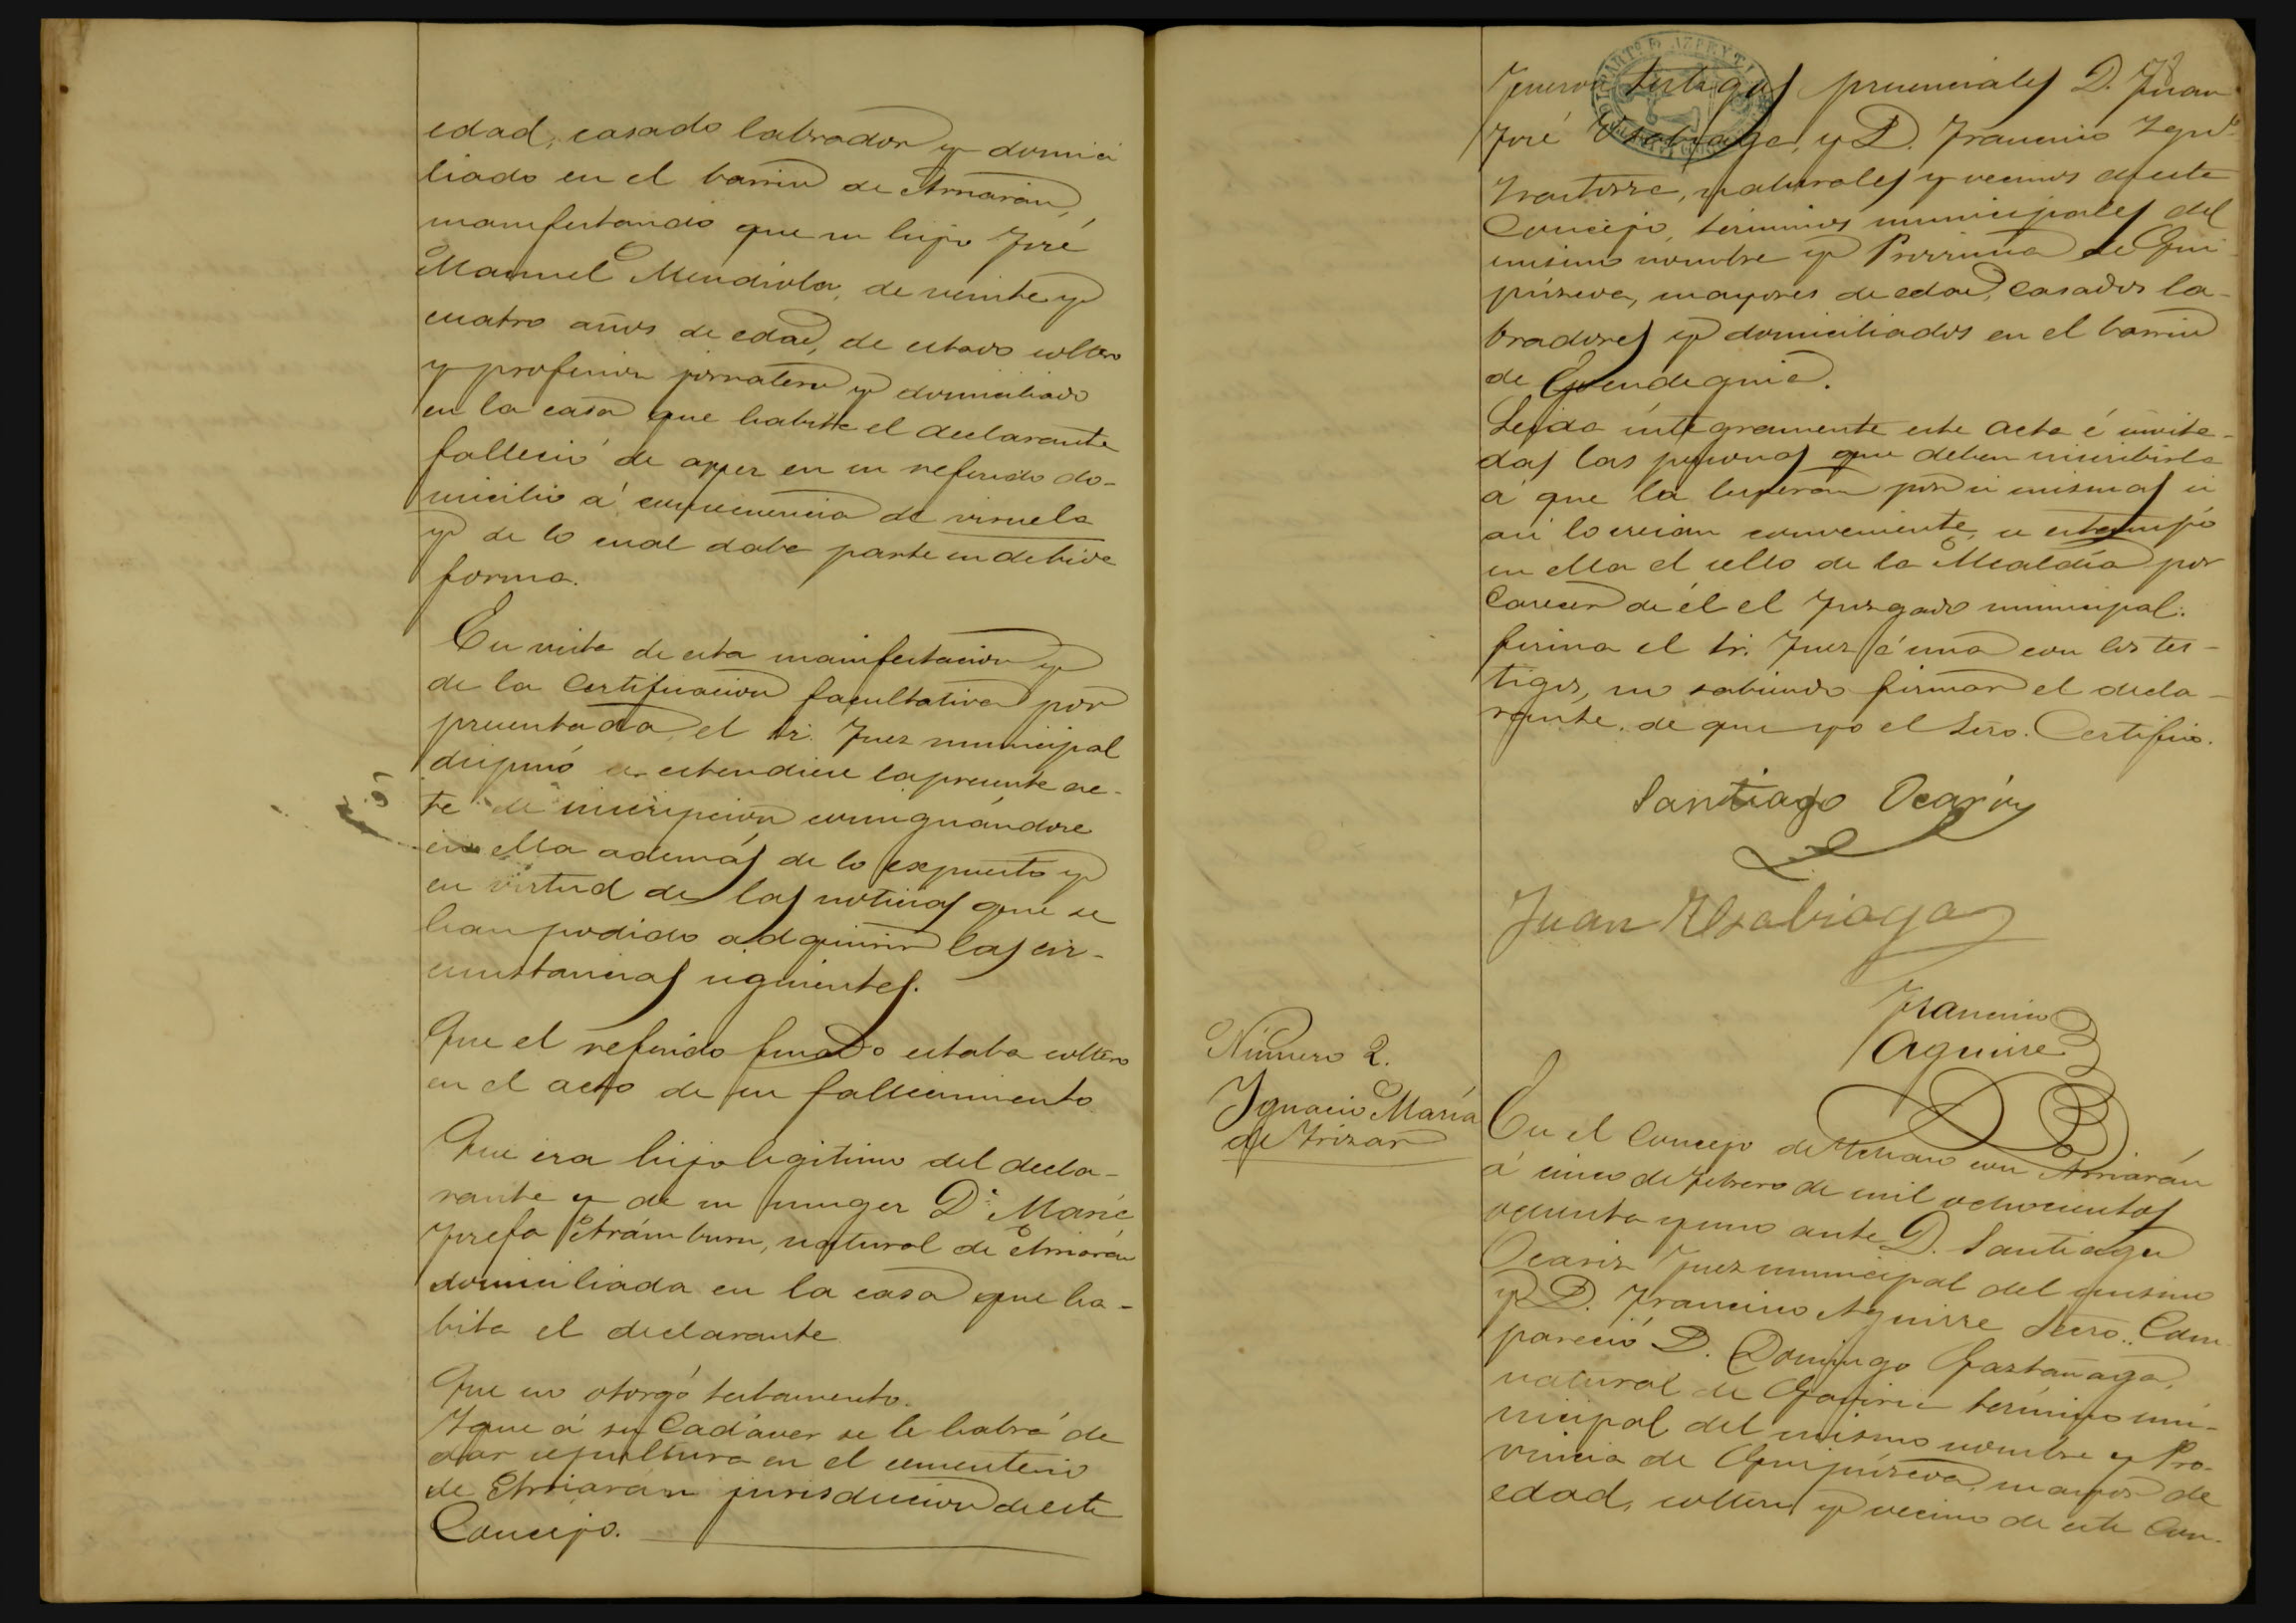 edad, casado labrador y domici
liado en el barrio de Arriarán,
manifestando que su hijo José
Manuel Mendiola, de veinte y
cuatro años de edad, de estado soltero
y profesion jornalero y domiciliado
en la casa que habita el declarante
falleció de ayer en su referido do-
micilio á consecuencia de viruela
y de lo cual daba parte en debida
forma.
En vista de esta manifestacion y
de la Certificacion facultativa por
presentada, el Sr. Juez municipal
dispuso se estendiese la presente ac-
ta de inscripcion consignándose
en ella además de lo expuesto y
en virtud de las noticias que se
han podido adquirir las cir-
cunstancias siguientes.
Que el referido finado estaba soltero
en el acto de su fallecimiento
Que era hijo legitimo del decla-
rante y de su muger Dª María
Josefa Arámburu, natural de Arriarán
domiciliada en la casa que ha-
bita el declarante
Que no otorgó testamento.
Y que á su Cadáver se le habrá de
dar sepultura en el cementerio
de Arriarán jurisdiccion de este
Concejo.
78
Fueron testigos presenciales D. Juan
José Usabiaga, y D. Francisco Ignº
Irastorza, naturales y vecinos de este
Concejo, términos municipales del
mismo nombre y Provincia de Gui
púzcoa, mayores de edad, casados la-
bradores y domiciliados en el barrio
de
Leida íntegramente este acta é invita-
das las personas que deben suscribirla
á que la leyeran por si mismas si
asi lo creian conveniente, se estampó
en ella el sello de la Alcaldía por
Carecer de él el Juzgado municipal.
firma el Sr. Juez á una con los tes-
tigos, no sabiendo firmar el decla-
rante, de que yo el Srio. Certifico.
Santiago Ocariz
Juan Usabiaga
Francisco
Aguirre
Número 2.
Ignacio María
de Irizar
En el Concejo de Ichaso con Arriarán
á cinco de Febrero de mil ochocientos
ochenta y uno ante D. Santiago
Ocariz Juez municipal del mismo
y D. Francisco Aguirre Secro. Com
pareció D. Domingo Gaztañaga,
natural de Gaviria término mu-
nicipal del mismo nombre y Pro-
vincia de Guipúzcoa, mayor de
edad, soltero y vecino de este Con-